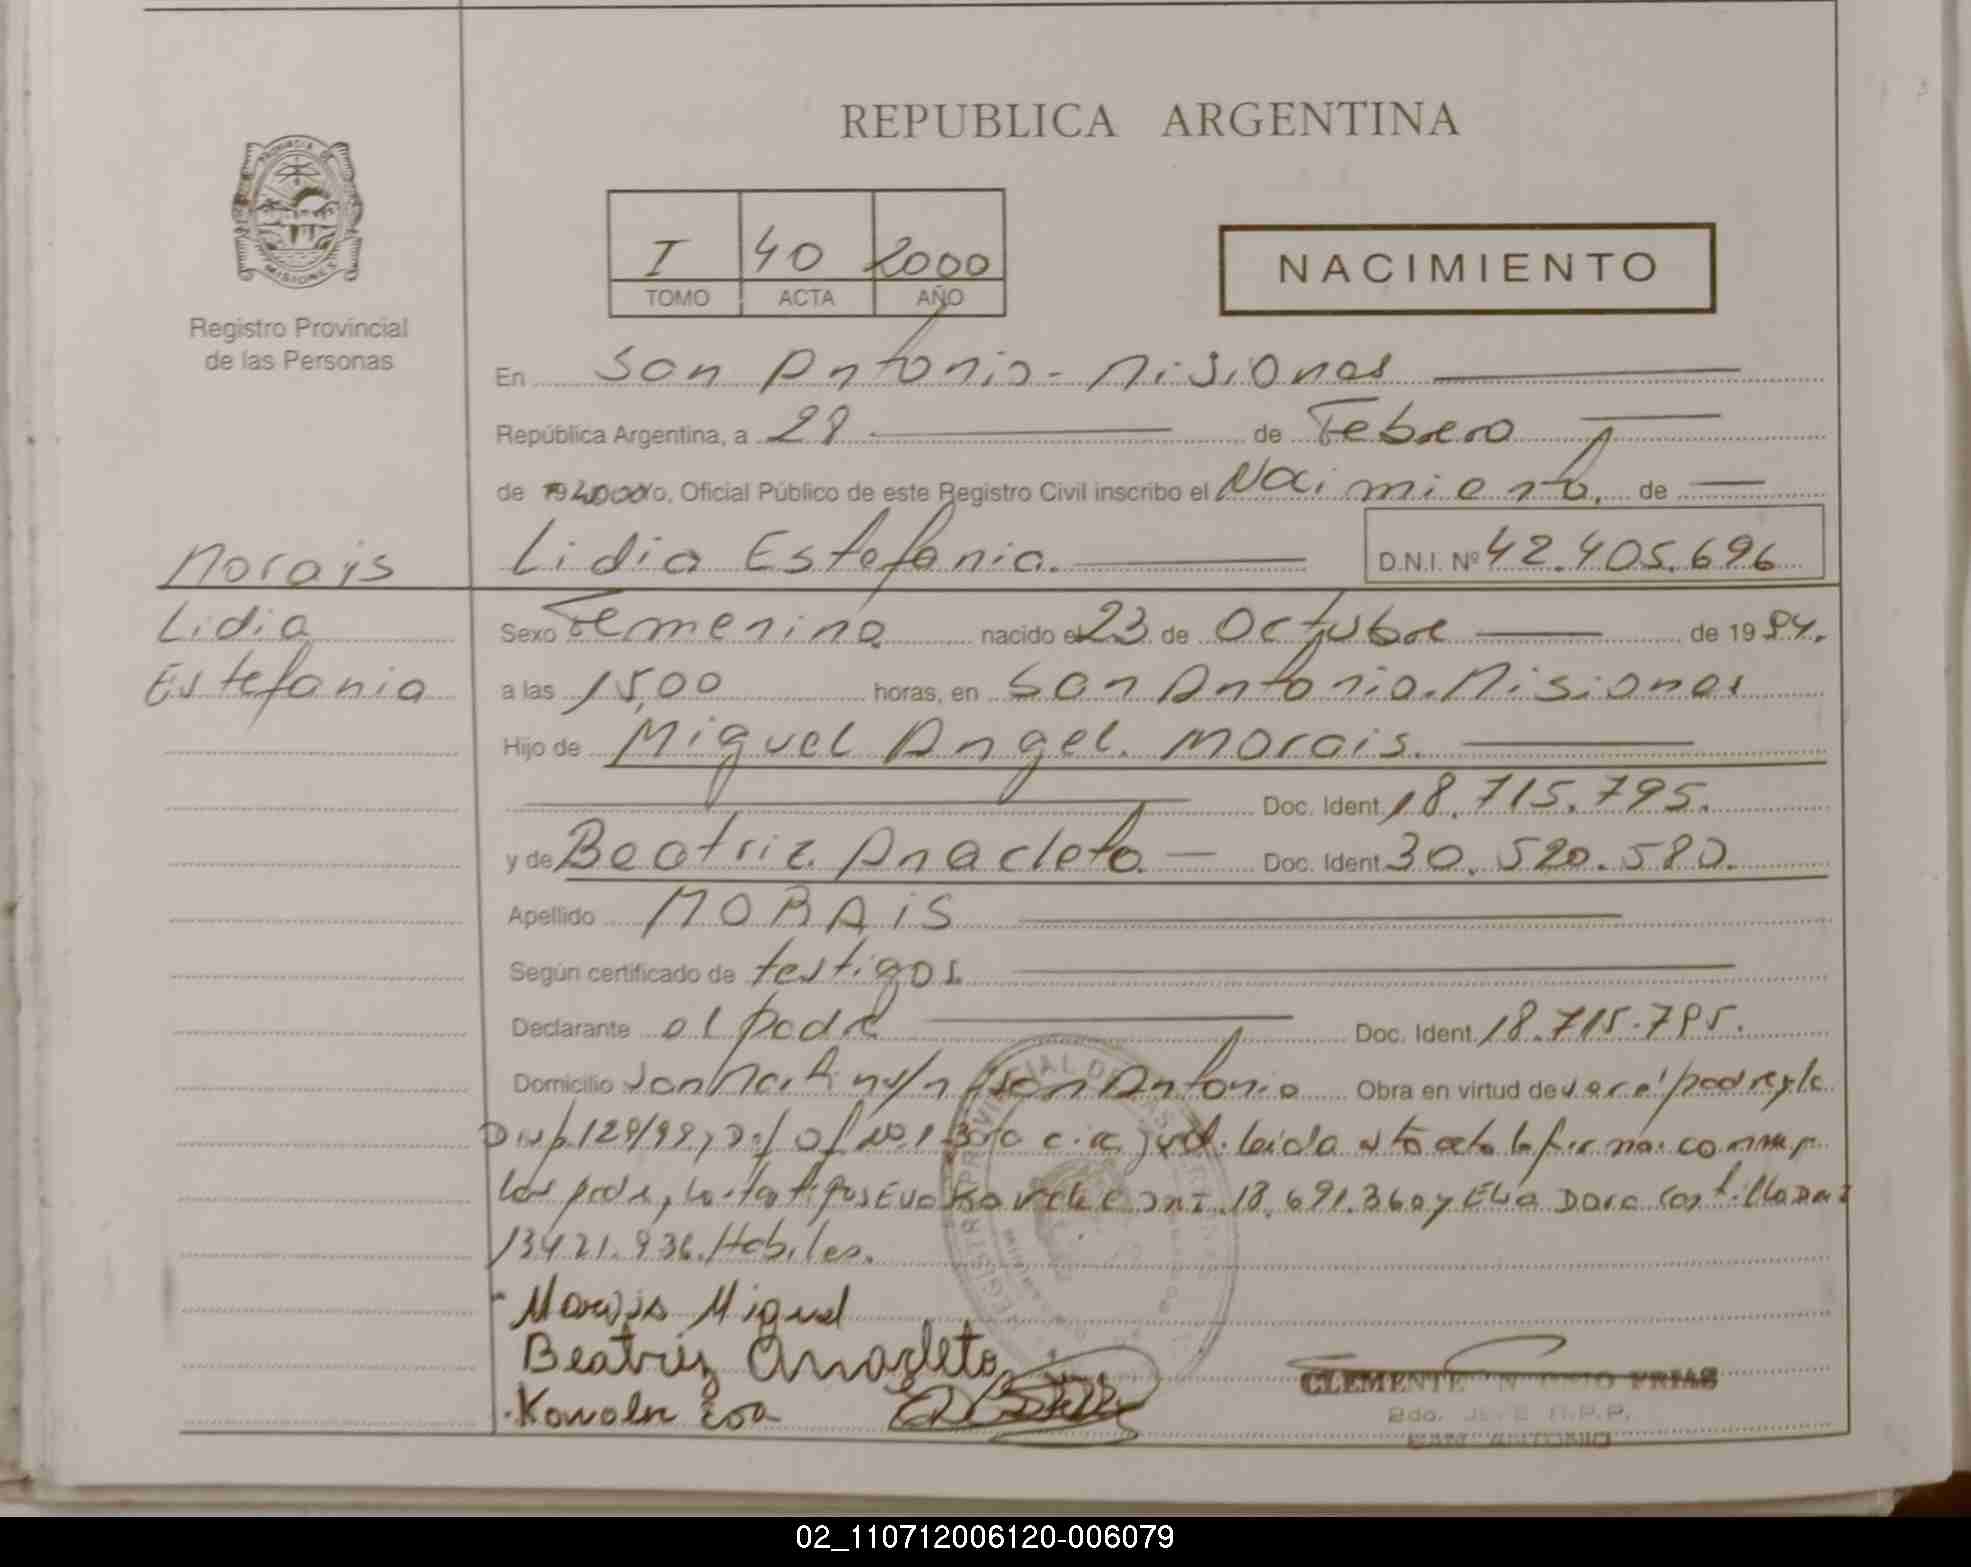 REPUBLICA ARGENTINA
PROVINCIA DE
MISIONES
Registro Provincial
de las Personas
I 40 2000
TOMO ACTA AÑO
NACIMIENTO
En San Antonio - Misiones
República Argentina, a 28 de Febrero
de 2000 yo, Oficial Público de este Registro Civil inscribo el Nacimiento. de
Morais
Lidia
Estefania
Lidia Estefania. D.N.I. Nº 42.405.696
Sexo Femenino nacido el 23 de Octubre de 19
a las 15,00 horas, en San Antonio. Misiones
Hijo de Miguel Angel. Morais.
Doc. Ident. 18.715.795.
y de Beatriz Anacleto Doc. Ident. 30.520.580.
Apellido MORAIS
Según certificado de testigos
Declarante el padre Doc. Ident. 18.715.795.
Domicilio San Martin s/n San Antonio Obra en virtud de
leida esta acta la firman conmigo
los padres, los testigos Eva DNI. 18.691.360 y Dora
13421.936. Habiles.
Morais Miguel
Beatriz Anacleto
Eva
CLEMENTE FRIAS
SAN ANTONIO
02_110712006120-006079